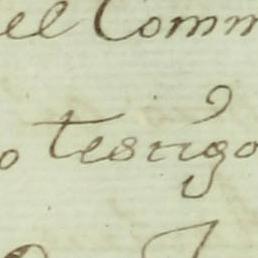 el Comm
o testigo